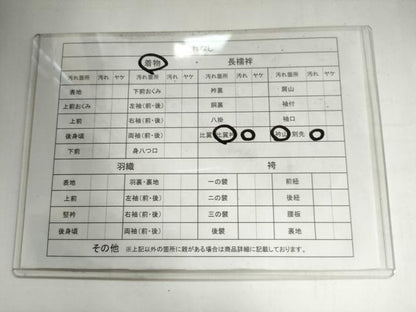 着物 長襦袢
汚れ箇所 汚れ ヤケ 汚れ箇所 汚れ ヤケ 汚れ箇所 汚れ ヤケ 汚れ箇所 汚れ ヤケ
表地 下前おくみ 衿裏 肩山
上前おくみ 左袖(前・後) 胴裏 袖付
上前 右袖(前・後) 八掛 袖口
後身頃 両袖(前・後) 比翼 比翼衿 衿山 剣先
下前 身八つ口
羽織 袴
表地 羽裏・裏地 一の襞 前紐
上前 左袖(前・後) 二の襞 後紐
竪衿 右袖(前・後) 三の襞 腰板
後身頃 両袖(前・後) 後襞 裏地
その他 ※上記以外の箇所に難がある場合は商品詳細に記載しております。